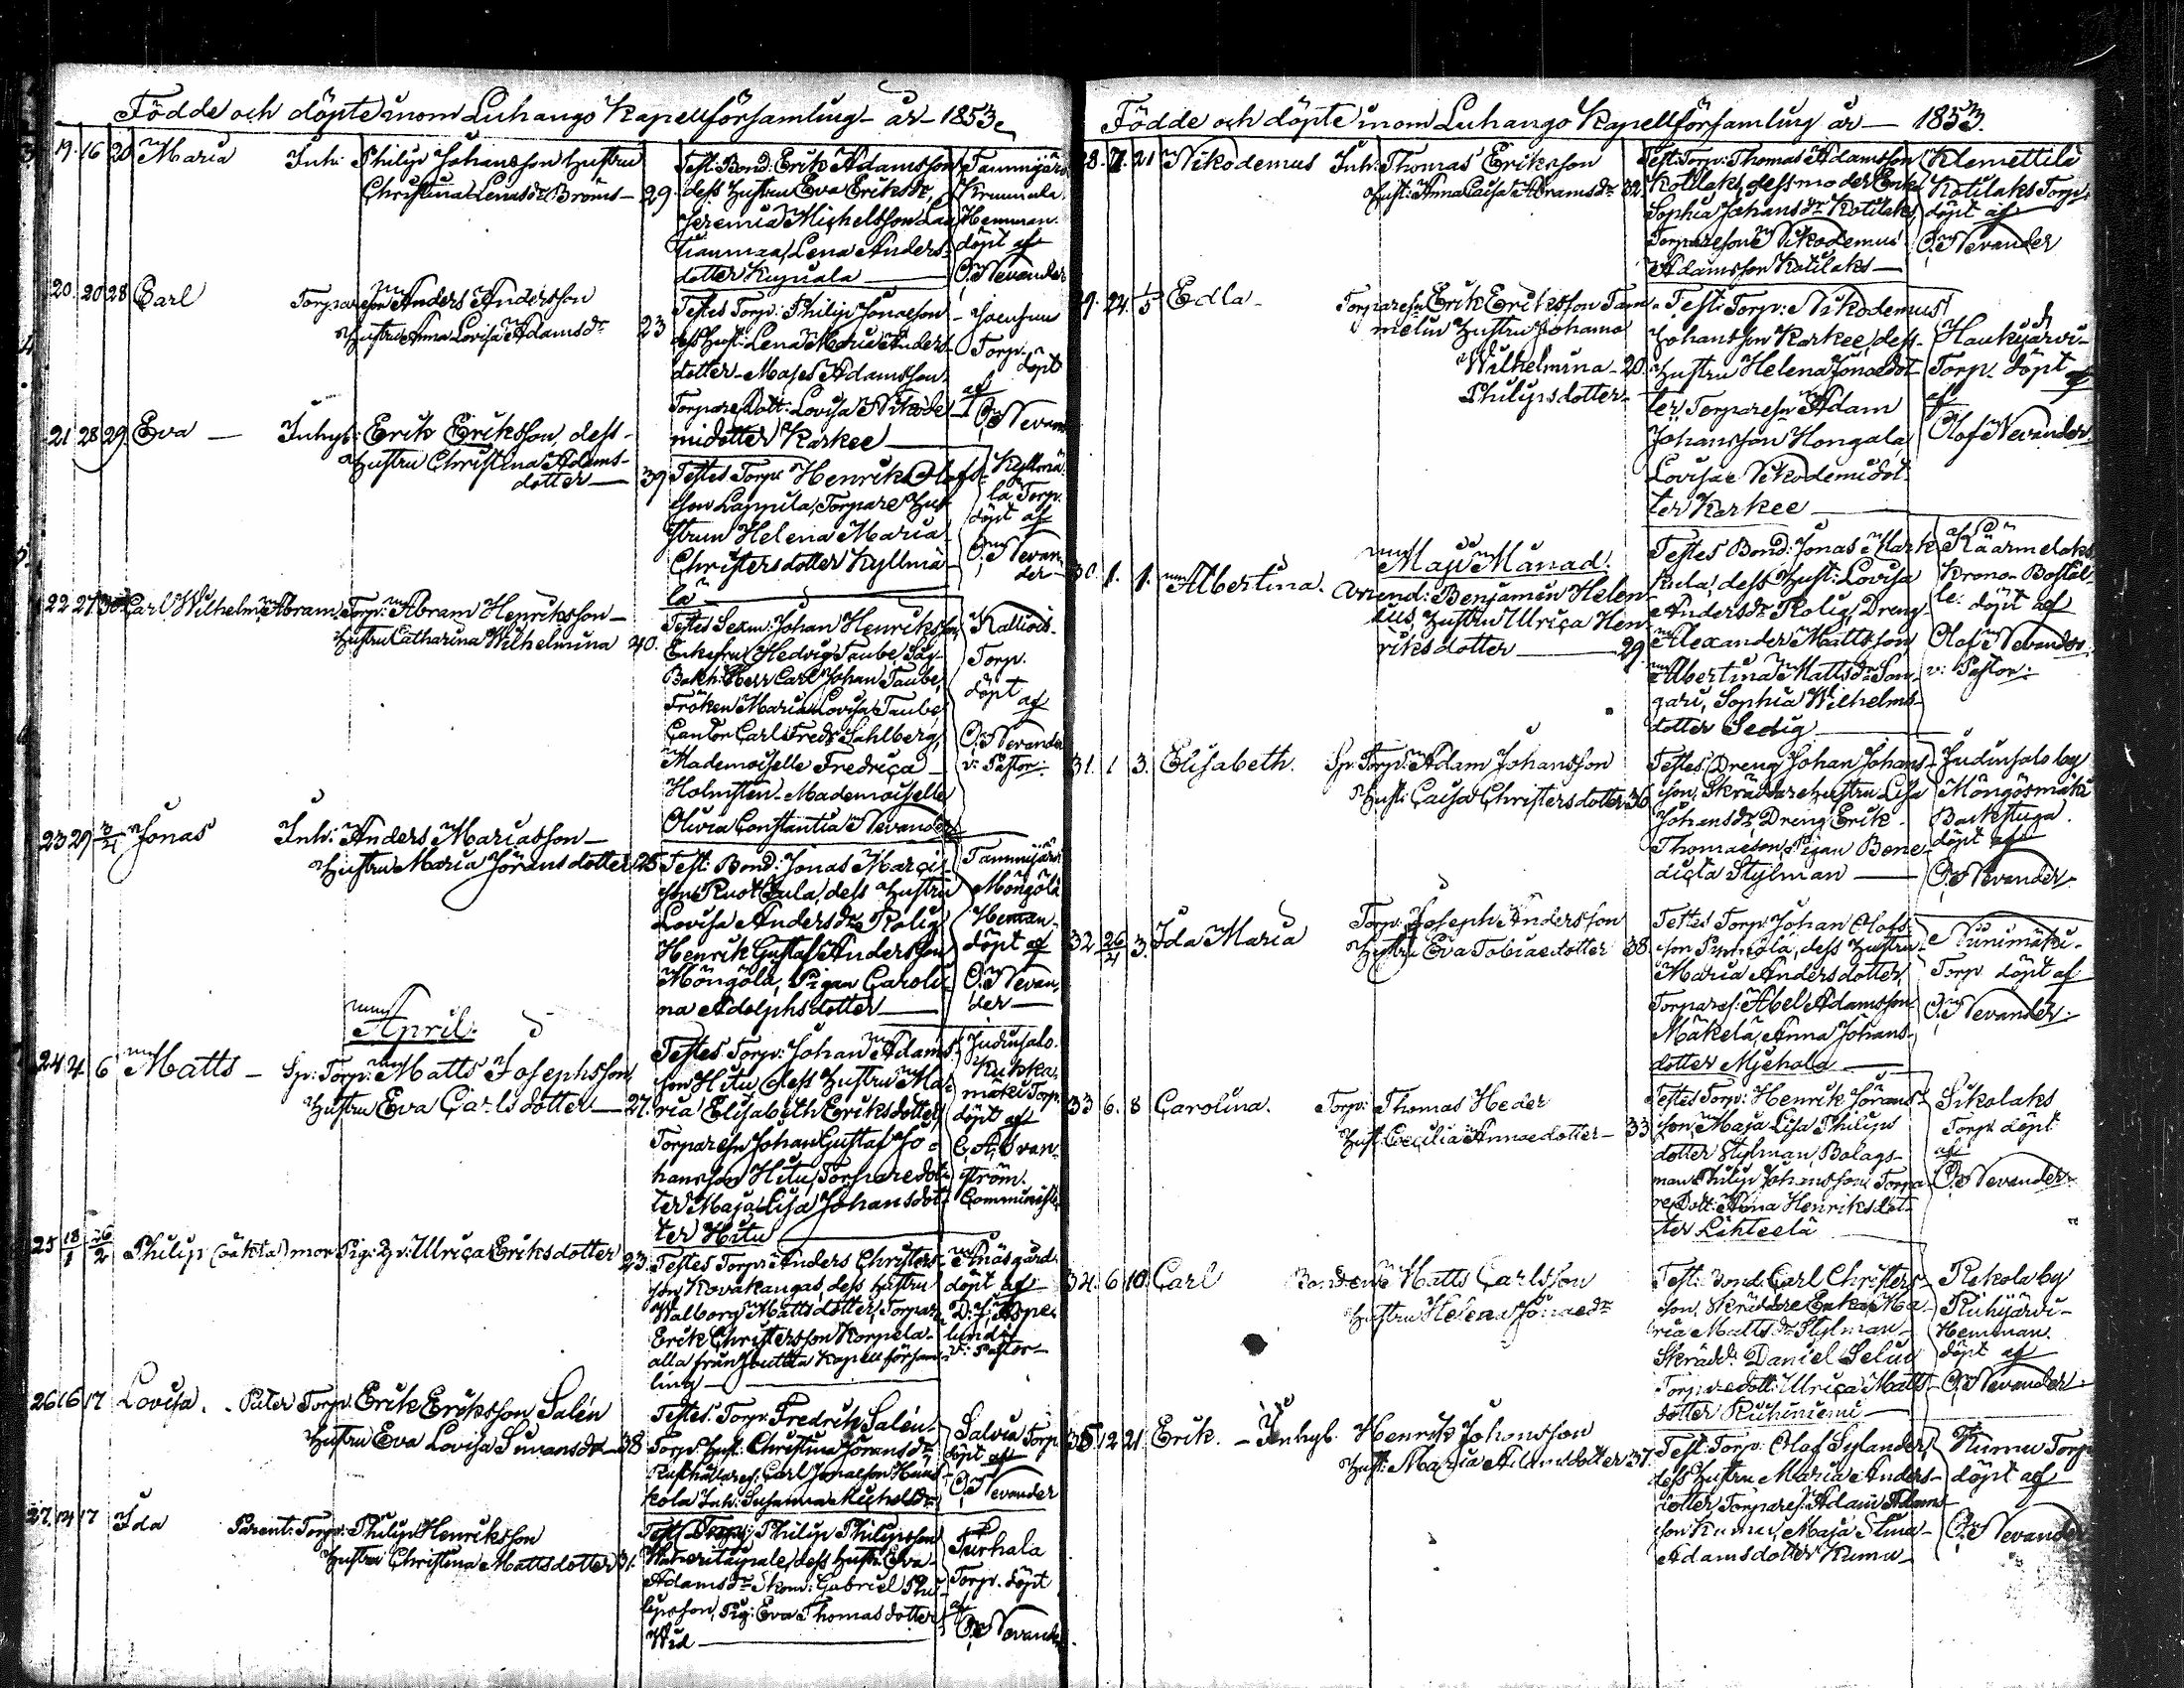 Födde och döpte inom Luhango Kapellförsamling år 1853.
19. 16 20 Maria Inh: Philip Johansson hustru
Christina Lenasdr Broms 29.
Test: Bond: Erik Adamsson
dess hustru Eva Eriksdr,
Jeremia Michelsson
Lena Anders-
dotter
Tammijärvi
Hemman.
döpt af
O. Nevander
20. 20 28 Carl Torpareson Anders Andersson
hustru Anna Lovisa Adamsdr 23
Testes Torp: Philip Jonaeson
dess hust: Lena Maria Anders-
dotter Moses Adamsson
Torpare Dott: Lovisa Nikode-
midotter Karkee
Torp. döpt
af
O. Nevander
21 28 29 Eva — Inhys: Erik Eriksson, dess
hustru Christina Adams-
dotter — 39
Testes Torp: Henrik Olofs-
son Lappila, Torpare hu-
strun Helena Maria
Christersdotter Kyllmä-
lä
Kyllmä-
lä Torp.
döpt af
O. Nevan-
der
22 27 30 Carl Wilhelm Abram Torp: Abram Henriksson
hustru Catharina Wilhelmina 40.
Testes Sexm: Johan Henriksson
Enkefru Hedvig Taube,
Bokh: Herr Carl Johan Taube,
Fröken Maria Lovisa Taube,
Cantor Carl Fredr Sahlberg,
Mademoiselle Fredrica
Holmsten Mademoiselle
Olivia Constantia Nevander
Torp.
döpt af
O. Nevander
v: Pastor.
23 29 3/4 Jonas Inh: Anders Mariasson
hustru Maria Jöransdotter 25
Test: Bond: Jonas Marcis-
son Ruokkula, dess hustru
Lovisa Andersdr Rolig
Henrik Gustaf Andersson
Möngölä, Pigan Caroli-
na Adolphsdotter
Tammijärvi
Möngölä
Heman.
döpt af
O. Nevan-
der
April.
24 4. 6 Matts — Sp: Torp: Matts Josephsson,
hustru Eva Carlsdotter — 27.
Testes Torp: Johan Adams-
son Hitu dess hustru Ma-
ria Elisabeth Eriksdotter,
Torpareson Johan Gustaf Jo-
hansson Hitu, Torparedot-
ter Maja Lisa Johansdot-
ter Hitu
Judinsalo.
Kukka-
mäki Torp.
döpt af
C. A. Bran-
ström.
Comminister
25 18/1 26/2 Philip (oäkta) mor Pig: Ulrica Eriksdotter 23.
Testes Torp: Anders Christers-
son Kovakangas, dess hustru
Walborg Mattsdotter, Torpar:
Erik Christersson Korpela
alla från Kapellförsam-
ling
döpt af
v: Pastor
26 16 17 Lovisa. Pater Torp: Erik Eriksson Salén
hustru Eva Lovisa Simansdr 38
Testes. Torp: Fredrik Salén
Torp: hust: Christina Jöransdr
Rusthållares: Carl Jonaeson
kola Inh: Susanna Michelsdr
Salvia Torp
döpt af
O. Nevander
27. 14 17 Ida Parent: Torp: Philip Henriksson
hustru Christina Mattsdotter 31.
Test: Torp: Philip Philipsson
dess hust: Eva
Adamsdr Skom: Gabriel Phi-
lipsson, Pig: Eva Thomasdotter
Wid
Purhala
Torp. döpt
af
O. Nevander
Födde och döpte inom Luhango Kapellförsamling år — 1853.
28. 7. 21 Nikodemus Inh: Thomas Eriksson
Hust: Anna Caisa Abramsdr 32.
Test: Torp: Thomas Adamsson
Kotilaks, dess moder Enk:
Sophia Johansdr Kotilaks,
Torpareson Nikodemus
Adamsson Kotilaks
Klemettilä
Kotilaks Torp.
döpt af
O. Nevander
29. 24. 1/5 Edla Torpareson Erik Eriksson Tam-
melin hustru Johanna
Wilhelmina 20.
Philipsdotter
Test: Torp: Nikodemus
Johansson Karkee, dess
hustru Helena Jonaedot-
ter, Torpareson Adam
Johansson Hongala,
Lovisa Nikodemidot-
ter Karkee
Haukijärvi
Torp. döpt
af
Olof Nevander.
Maji Månad.
30. 1. 1. Albertina. Arrend: Benjamin Helen-
ius, hustru Ulrica Hen-
riksdotter — 29.
Testes Bond: Jonas Mark-
kula, dess hust: Lovisa
Andersdr Rolig, Dreng
Alexander Mattsson
Albertina Mattsdr Son-
gari, Sophia Wilhelms-
dotter Sedig
Käärmelaks
Krono Bostäl-
le. döpt af
Olof Nevander.
v: Pastor.
31. 1 3. Elisabeth. Sp: Torp: Adam Johansson
Hust: Caisa Christersdotter 36.
Testes, Dreng Johan Johans-
son, Skräddarehustru Lisa
Johansdr, Dreng Erik
Thomaeson, Pigan Bene-
dicta Stylman
Judinsalo by
Möngösmäki
Backstuga.
döpt af
O. Nevander.
32. 26/4 3. Ida Maria Torp: Joseph Andersson
Hustru Eva Tobiaedotter 38.
Testes Torp: Johan Olofs-
son, dess hustru
Maria Andersdotter,
Torpares: Abel Adamsson
Mäkelä, Anna Johans-
dotter
Niinimäki
Torp döpt af
O. Nevander.
33 6. 8 Carolina. Torp: Thomas Heder
Hust: Cecilia Annaedotter — 33
Testes Torp: Henrik Jörans-
son, Maja Lisa Philips
dotter Stylman, Bolags-
man Philip Johansson, Torpa-
re Dott: Anna Henriksdot-
ter Lähteelä
Sikolaks
Torp döpt
af
O. Nevander.
34. 6 10. Carl Bonden Matts Carlsson
hustru Helena Jonaedr
Test: Bond: Carl Christers-
son, Skräddare Enka Ma-
ria Mattsdr Stylman
Skrädd: Daniel Selin
Torparedott: Ulrica Matts-
dotter Riihiniemi
Rekola by
Riihijärvi
Hemman.
döpt af
O. Nevander.
35 12 21. Erik. — Inhys. Henrik Johansson
Hust: Maria Adamsdotter 37.
Test: Torp: Olof Sylander,
dess hustru Maria Anders-
dotter Torpares: Adam Adams-
son Kumu, Maja Stina
Adamsdotter Kumu
Kumu Torp
döpt af
O. Nevander